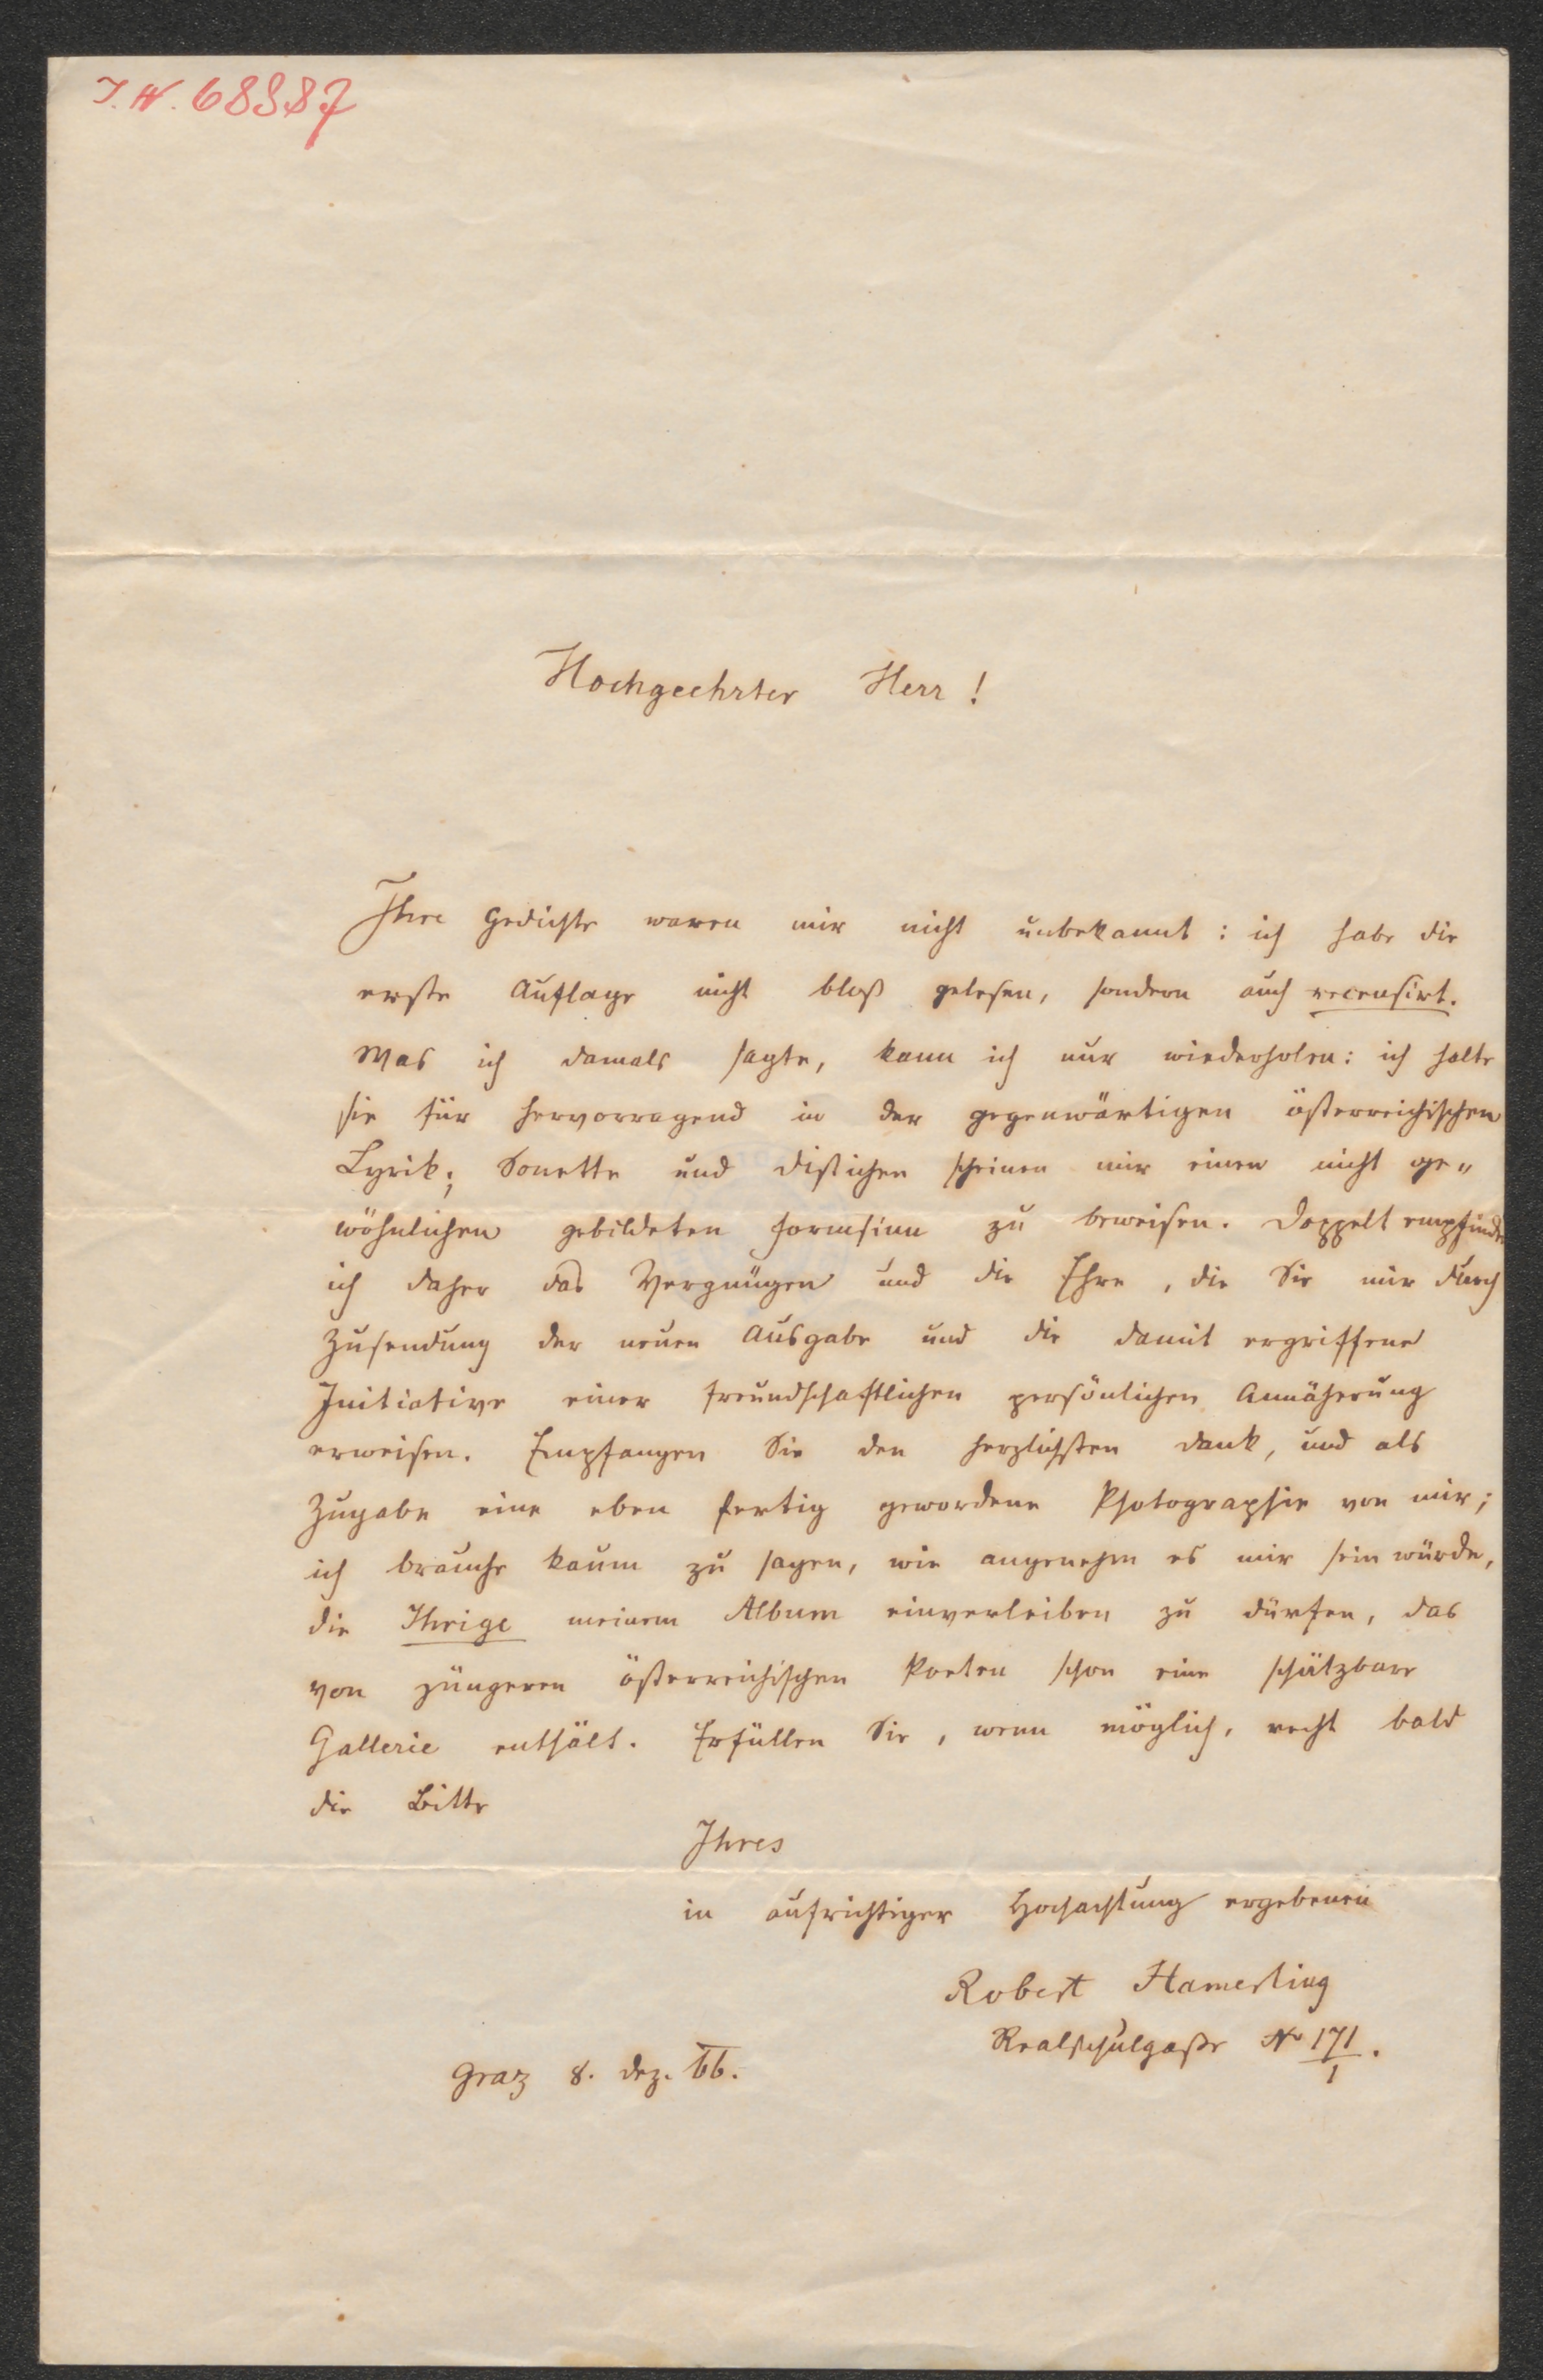 I.N. 68887
Hochgeehrter Herr!
Ihre Gedichte waren mir nicht unbekannt: ich habe die
erste Auflage nicht bloß gelesen, sondern auch recensirt.
Was ich damals sagte, kann ich nur wiederholen: ich halte
sie für hervorragend in der gegenwärtigen österreichischen
Lyrik; Sonette und Distichen scheinen mir einen nicht ge-
wöhnlichen gebildeten Formsinn zu beweisen. Doppelt empfinde
ich daher das Vergnügen und die Ehre, die Sie mir durch
Zusendung der neuen Ausgabe und die damit ergriffene
Initiative einer freundschaftlichen persönlichen Annäherung
erweisen. Empfangen Sie den herzlichsten Dank, und als
Zugabe eine eben fertig gewordene Photographie von mir;
ich brauche kaum zu sagen, wie angenehm es mir sein würde,
die Ihrige meinem Album einverleiben zu dürfen, das
von jüngeren österreichischen Poeten schon eine schätzbare
Gallerie enthält. Erfüllen Sie, wenn möglich, recht bald
die Bitte
Ihres
in aufrichtiger Hochachtung ergebenen
Robert Hamerling
Realschulgasse No 171/1.
Graz 8. Dez. 66.